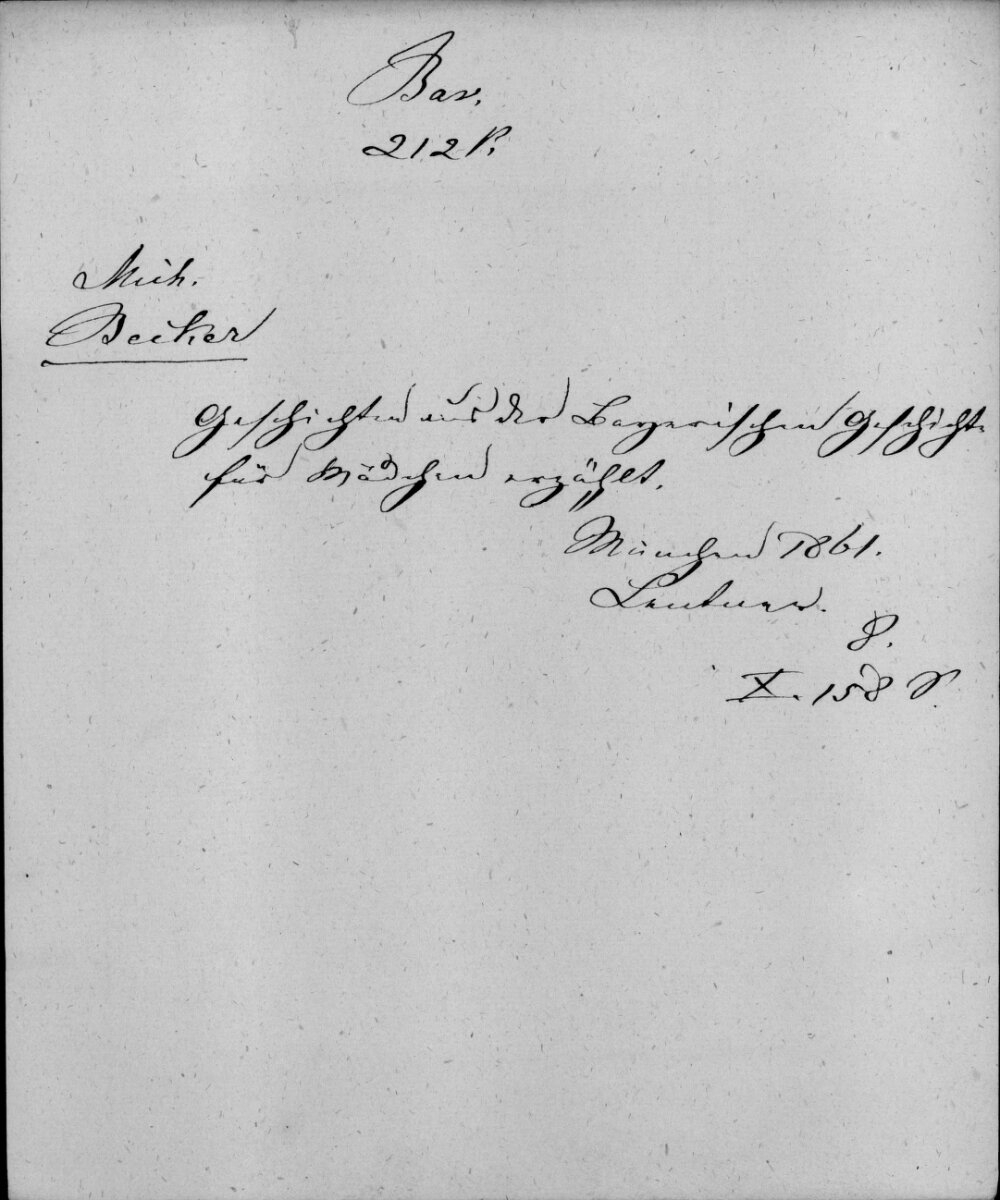 Bav.
212 l.
Mich.
Becker
Geschichten aus der Bayerischen Geschichte
für Mädchen erzählt.
München 1861.
Lentner.
8.
X. 158 S.